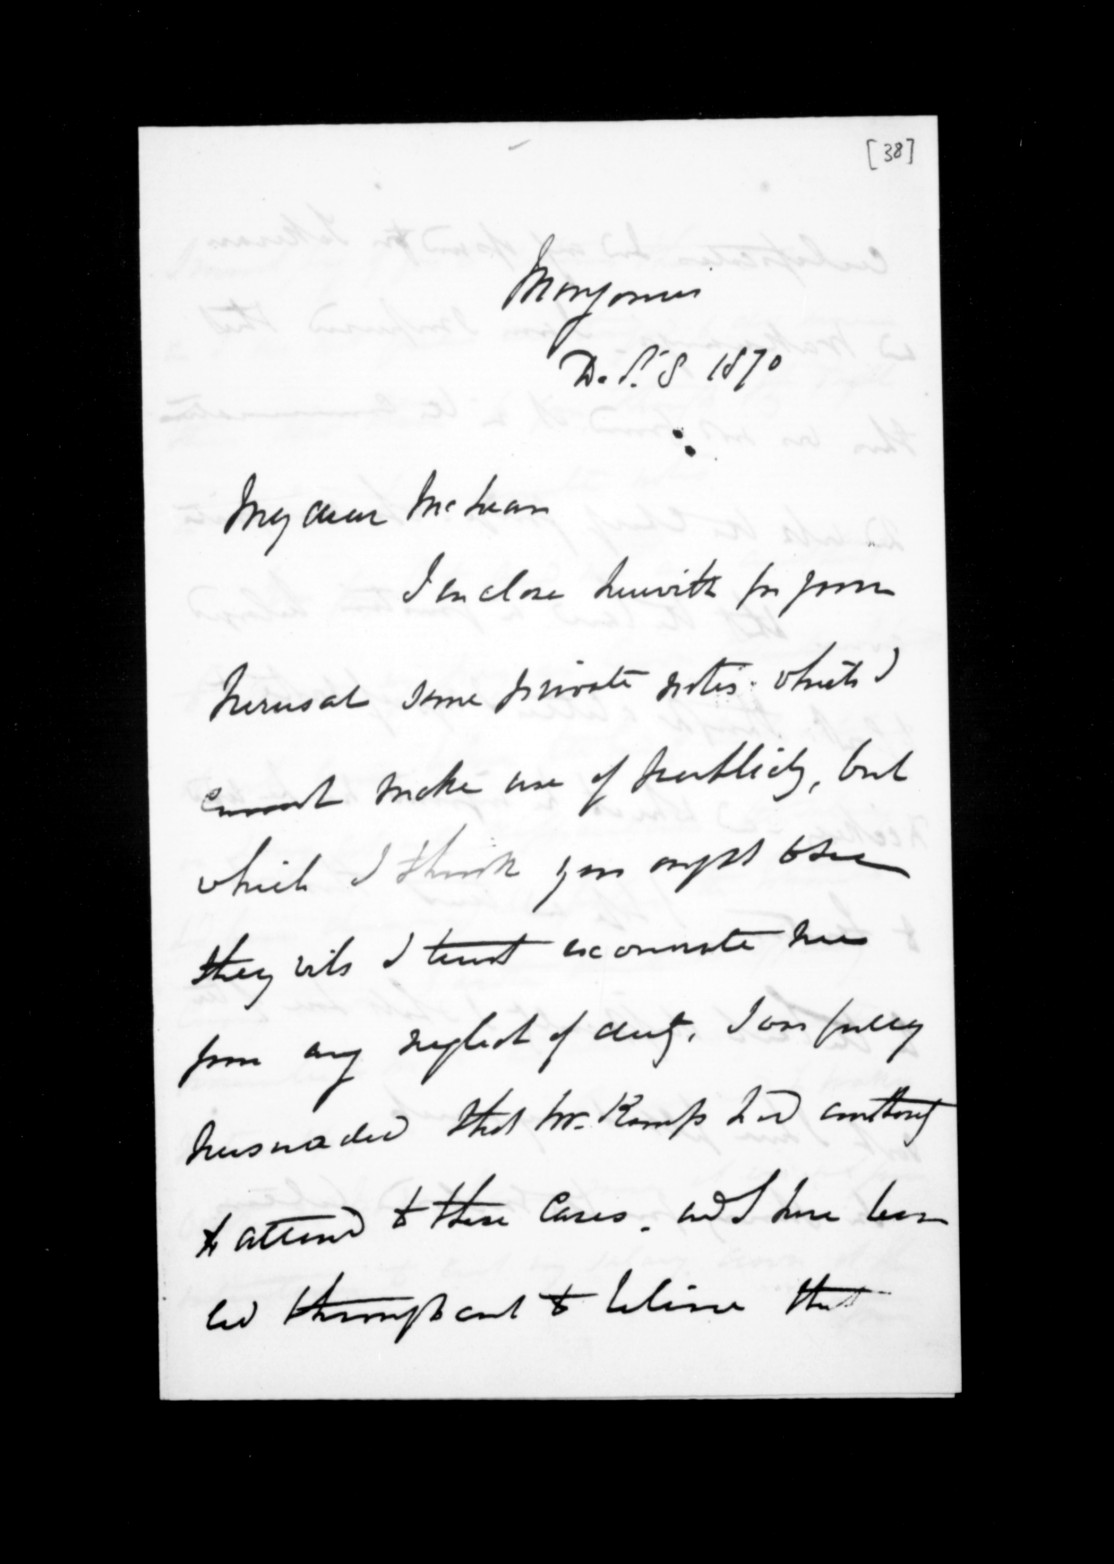 [38]
Mongonui
Decr. 8 1870
My dear McLean
I enclose herewith for your
perusal some private notes which I
cannot make use of publicly, but
which I think you ought to see
they will I trust exonerate me
from any neglect of duty. I am fully
persuaded that Mr. Kemp had authority
to attend to these Cases. and I have been
led throughout to believe that